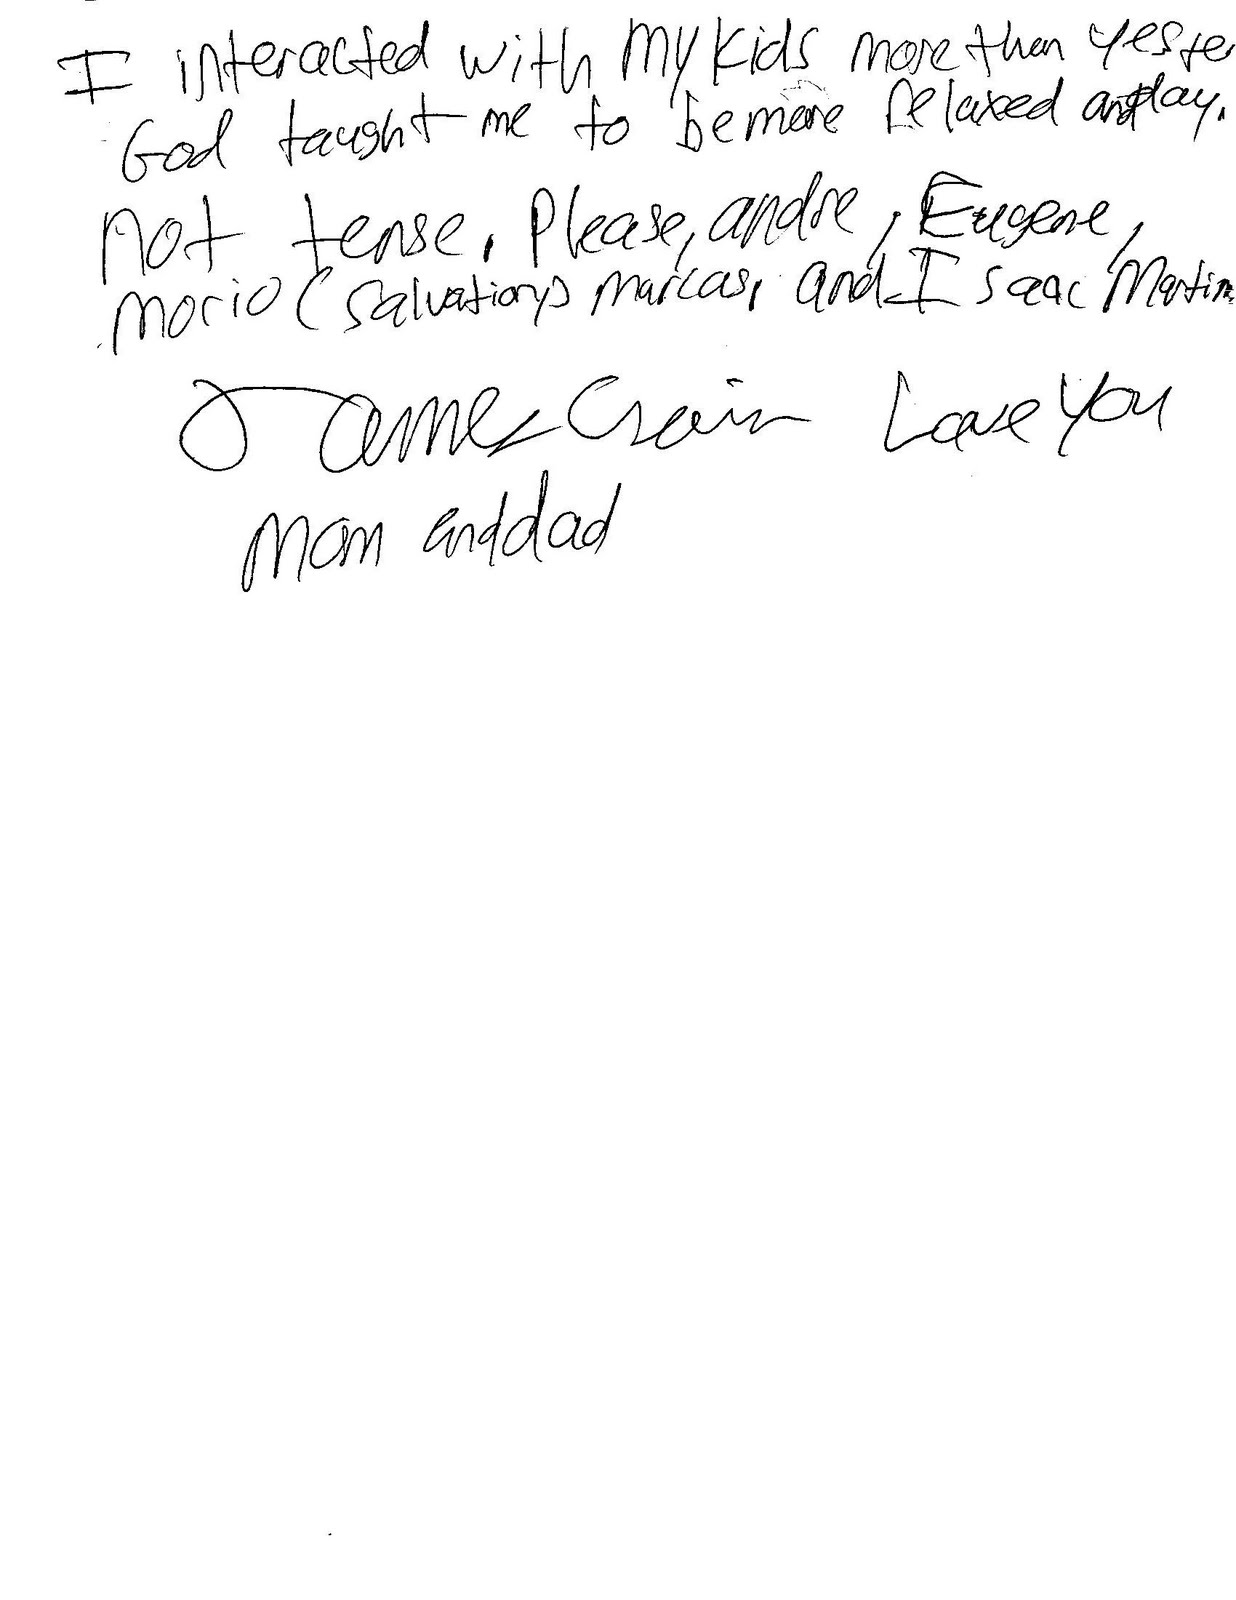 I interacted with My kids more than Yeste
God taught me to be more Relaxed and play.
not tense, Please, andre, Eugene,
Mocio (Salvation) Marcas, and Isaac Martin
James Crain Love You
Mom and dad